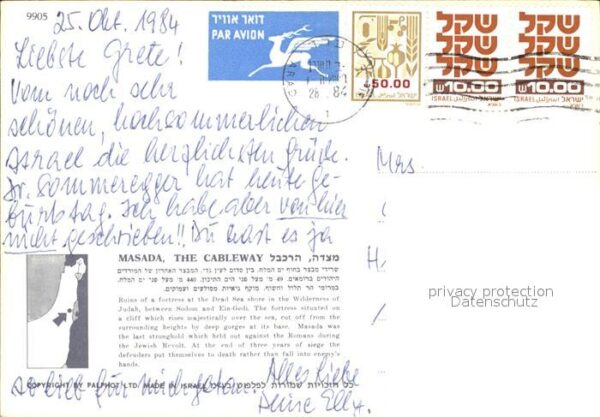 9905
25. Okt. 1984
דואר אוויר
PAR AVION
50.00
שקל
שקל
שקל
10.00
ISRAEL
ישראל
שקל
שקל
שקל
10.00
ISRAEL
ישראל
ARAD
84
Liebste Grete!
Vom noch sehr
schönen, hochsommerlichen
Israel die herzlichsten Grüße.
Dr. Sommeregger hat heute Ge-
burtstag. Ich habe aber von hier
nicht geschrieben!! Du hast es ja
Mrs.
H
MASADA, THE CABLEWAY מצדה, הרכבל
Ruins of a fortress at the Dead Sea shore in the Wilderness of
Judah, between Sodom and Ein-Gedi. The fortress situated on
a cliff which rises majestically over the sea, cut off from the
surrounding heights by deep gorges at its base. Masada was
the last stronghold which held out against the Romans during
the Jewish Revolt. At the end of three years of siege the
defenders put themselves to death rather than fall into enemy's
hands.
privacy protection
Datenschutz
COPYRIGHT BY PALPHOT LTD. MADE IN ISRAEL כל הזכויות שמורות לפלפוט בע"מ
so lieb für mich getan. Alles Liebe
Deine Elly.